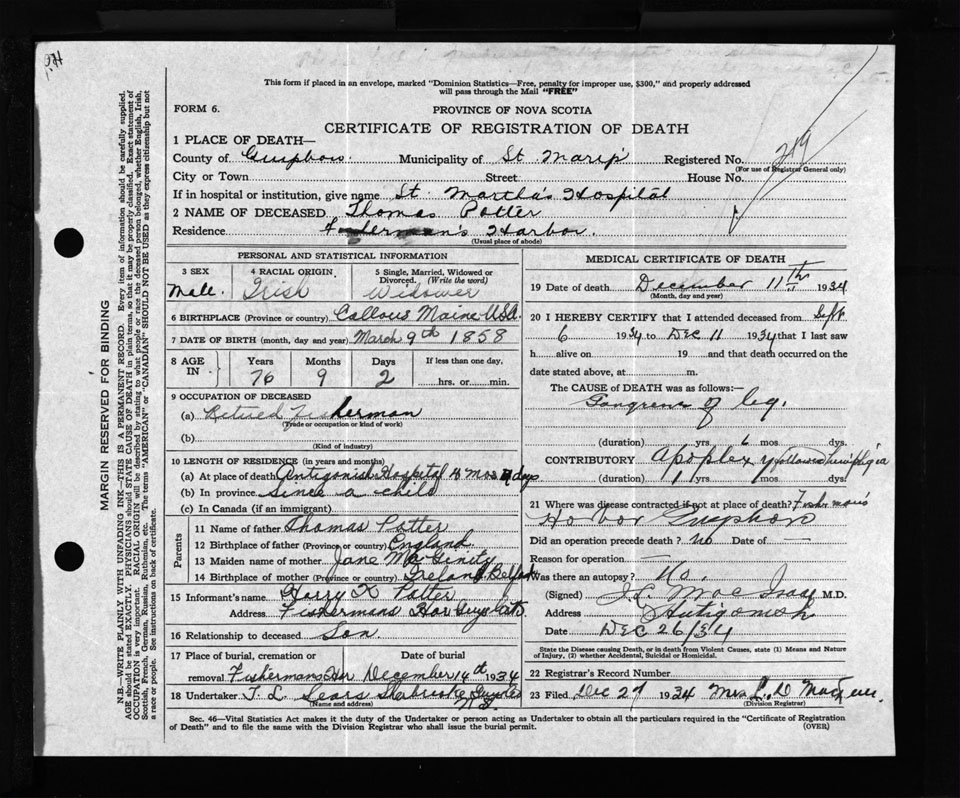 This form if placed in an envelope, marked "Dominion Statistics—Free, penalty for improper use, $300," and properly addressed
will pass through the Mail "FREE"
FORM 6.
PROVINCE OF NOVA SCOTIA
CERTIFICATE OF REGISTRATION OF DEATH
1 PLACE OF DEATH—
County of Municipality of St Registered No. 219
(For use of Registrar General only)
City or Town Street House No.
If in hospital or institution, give name St. Martha's Hospital
2 NAME OF DECEASED Thomas Potter
Residence Fisherman's Harbor.
(Usual place of abode)
PERSONAL AND STATISTICAL INFORMATION
3 SEX Male.
4 RACIAL ORIGIN Irish
5 Single, Married, Widowed or Divorced. (Write the word) Widower
6 BIRTHPLACE (Province or country) Callous Maine USA.
7 DATE OF BIRTH (month, day and year) March 9th 1858
8 AGE IN Years Months Days If less than one day.
76 9 2 hrs. or min.
9 OCCUPATION OF DECEASED
(a) Retired Fisherman
(Trade or occupation or kind of work)
(b)
(Kind of industry)
10 LENGTH OF RESIDENCE (in years and months)
(a) At place of death Antigonish Hospital mos days
(b) In province Since a child
(c) In Canada (if an immigrant)
Parents
11 Name of father Thomas Potter
12 Birthplace of father (Province or country) England
13 Maiden name of mother Jane McGinity
14 Birthplace of mother (Province or country) Ireland, Belfast
15 Informant's name Harry Potter
Address Fishermans Har Guys
16 Relationship to deceased Son.
17 Place of burial, cremation or Date of burial
removal Fishermans Har December 14th 1934
18 Undertaker Sears
(Name and address)
MEDICAL CERTIFICATE OF DEATH
19 Date of death December 11th 1934
(Month, day and year)
20 I HEREBY CERTIFY that I attended deceased from Sept.
6 1934 to Dec 11 1934 that I last saw
h alive on 19 and that death occurred on the
date stated above, at m.
The CAUSE OF DEATH was as follows:—
Gangrene of leg.
(duration) yrs. 6 mos. dys.
CONTRIBUTORY Apoplexy followed
(duration) 1 yrs. mos. dys.
21 Where was disease contracted if not at place of death? Fishermans
Harbor
Did an operation precede death? No Date of —
Reason for operation —
Was there an autopsy? No.
(Signed) Mac Isaac M.D.
Address Antigonish
Date Dec 26/34
State the Disease causing Death, or in death from Violent Causes, state (1) Means and Nature
of Injury, (2) whether Accidental, Suicidal or Homicidal.
22 Registrar's Record Number
23 Filed Dec 27 1934 Mrs L. D
(Division Registrar)
Sec. 46—Vital Statistics Act makes it the duty of the Undertaker or person acting as Undertaker to obtain all the particulars required in the "Certificate of Registration
of Death" and to file the same with the Division Registrar who shall issue the burial permit. (OVER)
MARGIN RESERVED FOR BINDING
N.B.—WRITE PLAINLY WITH UNFADING INK—THIS IS A PERMANENT RECORD. Every item of information should be carefully supplied.
AGE should be stated EXACTLY. PHYSICIANS should STATE CAUSE OF DEATH in plain terms, so that it may be properly classified. Exact statement of
OCCUPATION is very important. RACIAL ORIGIN will be described by stating to what people or race the deceased person belonged, whether English, Irish,
Scottish, French, German, Russian, Ruthenian, etc. The terms "AMERICAN" or "CANADIAN" SHOULD NOT BE USED as they express citizenship but not
a race or people. See instructions on back of certificate.